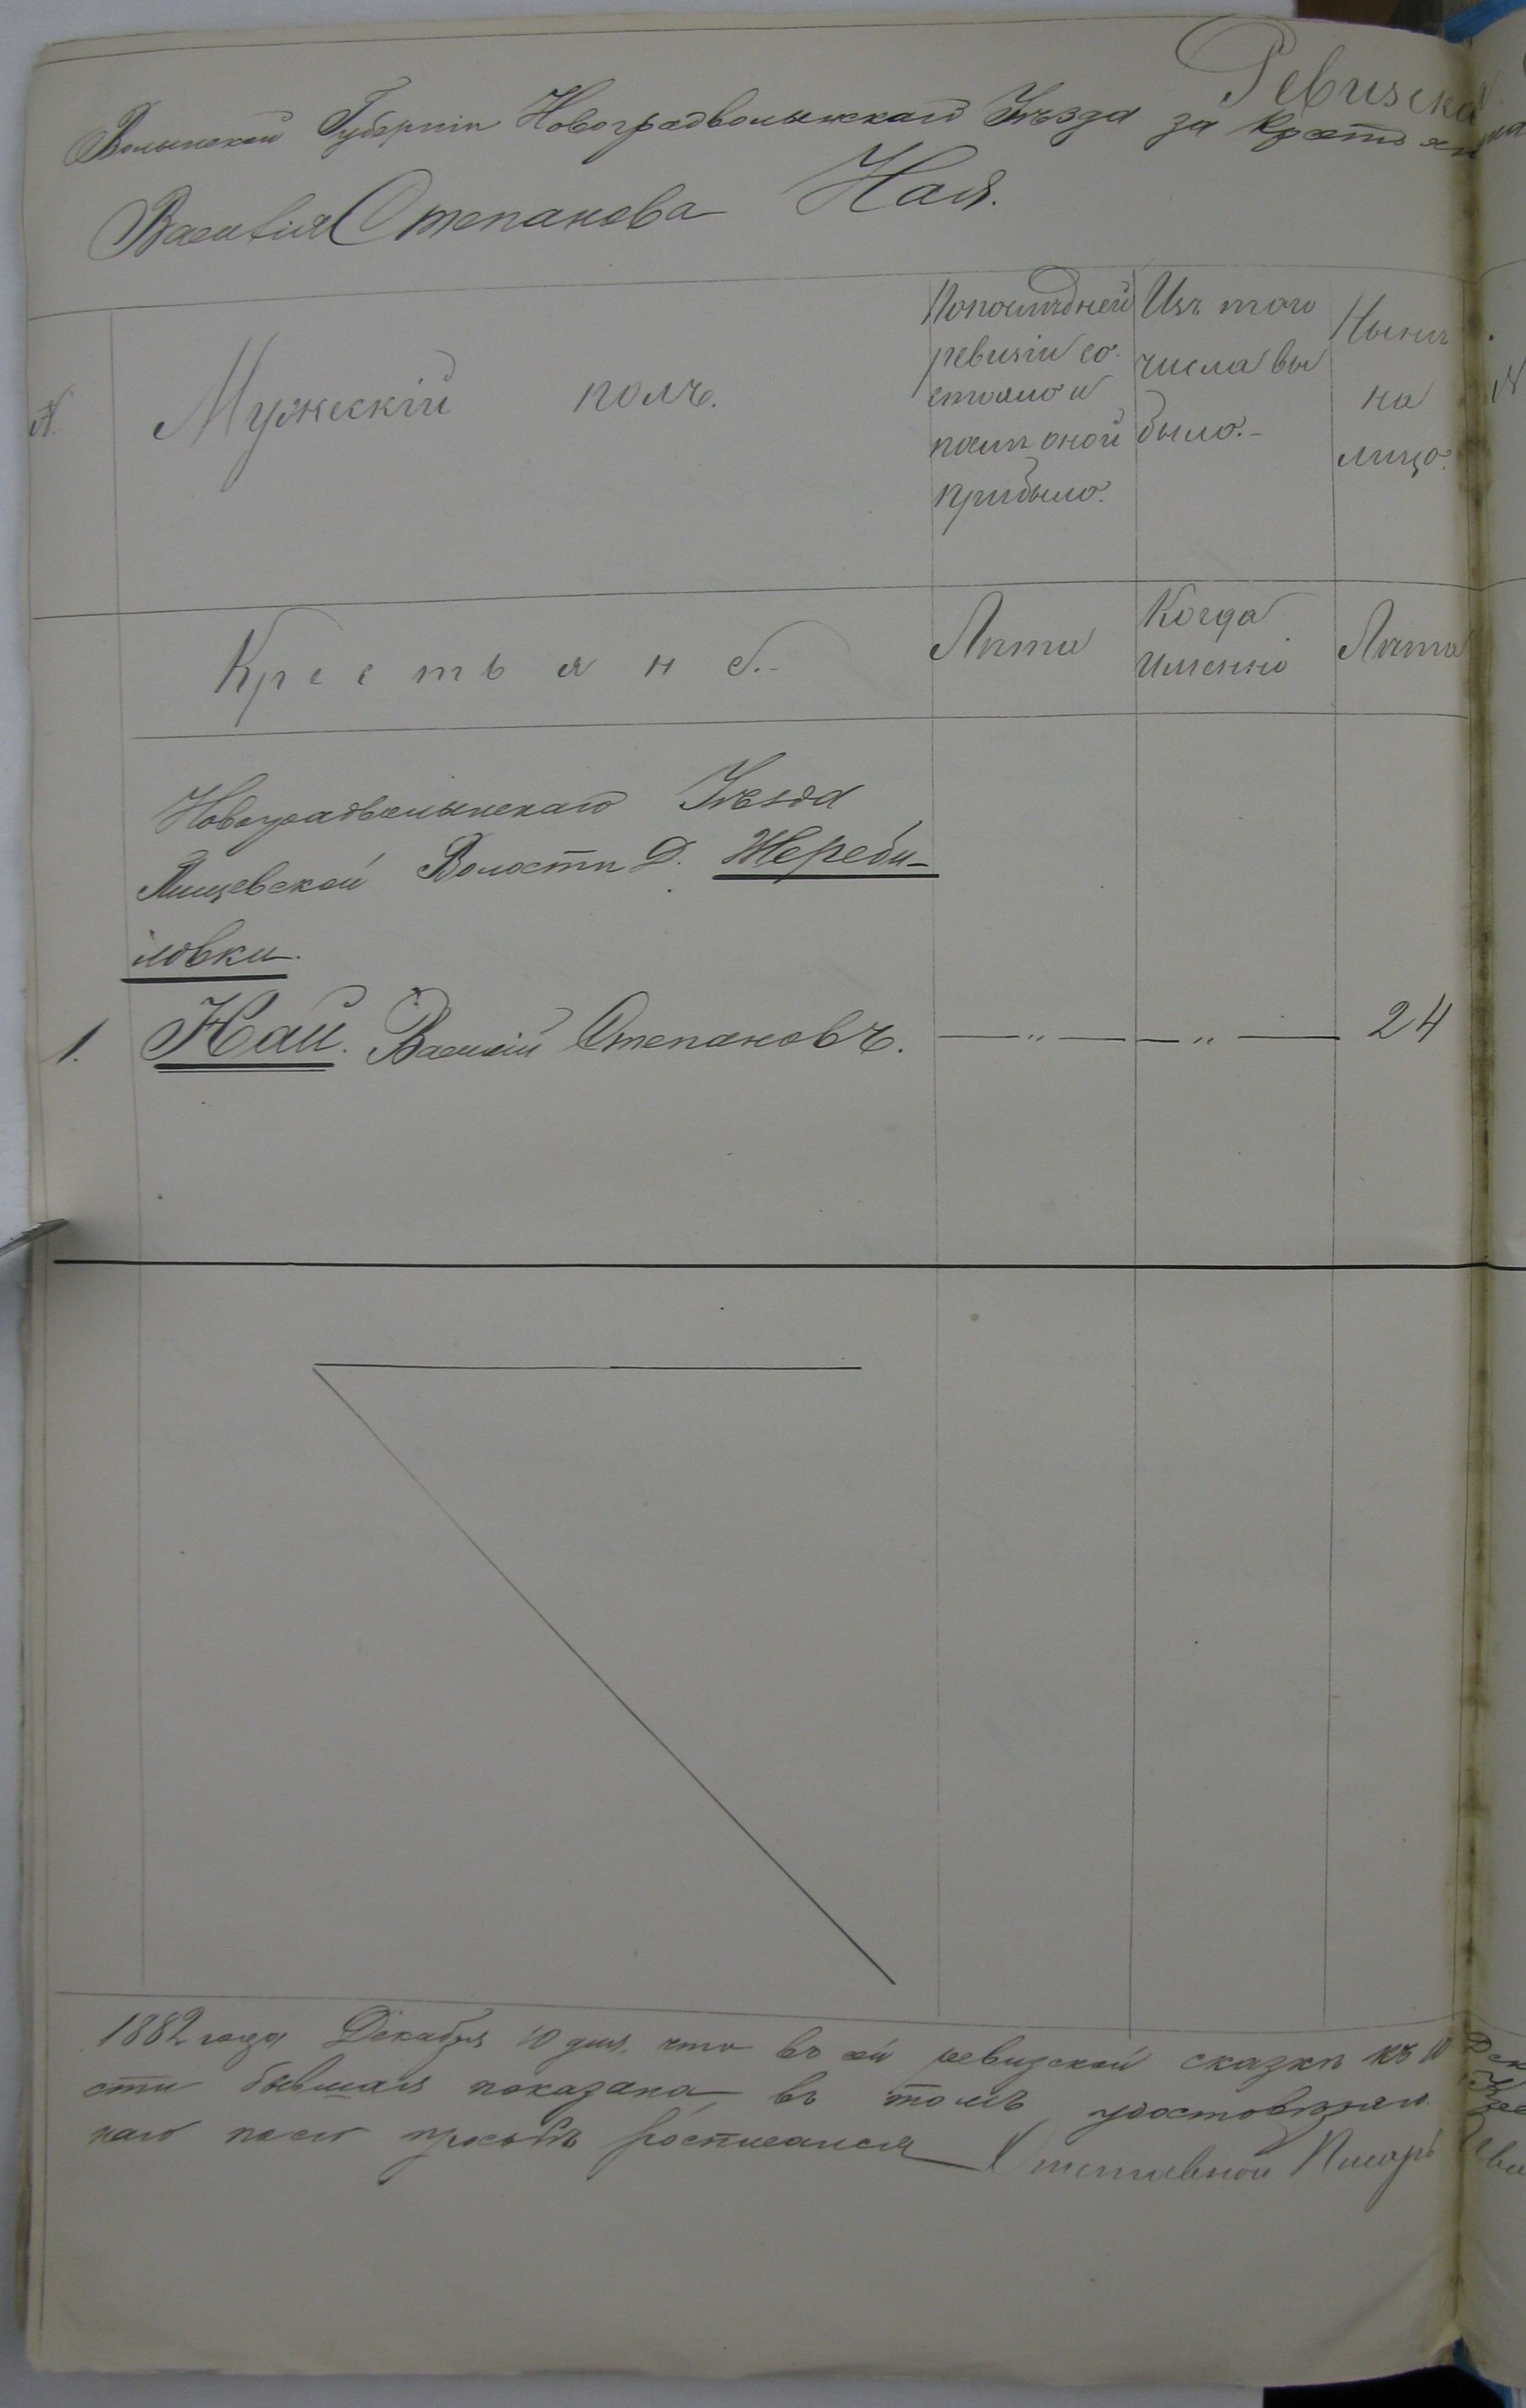 Ревизска
Волынской Губерніи Новоградволынскаго Уѣзда за Крестьян
Василія Степанова Ная.
№
Мужескій полъ.
По послѣдней
ревизіи со-
стояло и
послѣ оной
прибыло.
Изъ того
числа вы
было.-
Нынѣ
на
лицо.
Крестьянс.-
Лѣта
Когда
именно
Лѣта
Новоградволынскаго Уѣзда
Пищевской Волости Д. Жереби-
ловки.
1. Най. Василій Степановъ. — „ — — „ — 24
1882 года Декабря 10 дня, что въ сей ревизской сказкѣ къ 10
сти бывшая показана въ томъ удостовѣряю.
наго по его просьбѣ росписался Отставной Писарь